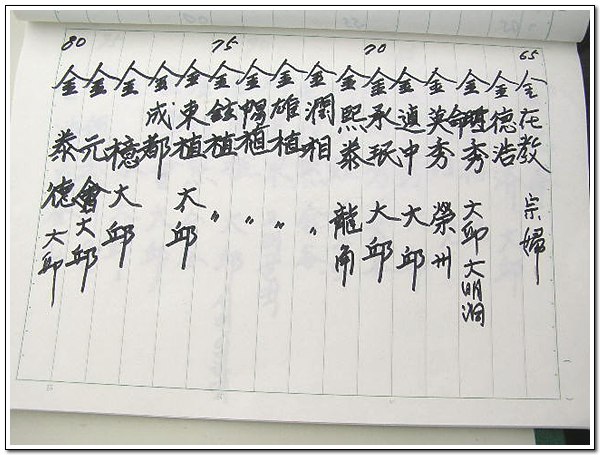 65 金在教 宗婦
金德浩
金秀 大邱 大明洞
金英秀 榮州
金遉中 大邱
70 金承珉 大邱
金熙泰 龍角
金潤相 〃
金雄植 〃
金暢植 〃
75 金鉉植 〃
金東植 大邱
金成都
金檍 大邱
金元會 大邱
80 金泰德 大邱